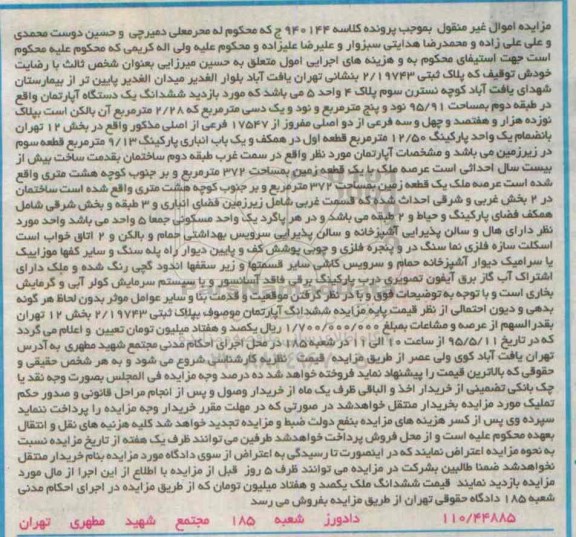 مزایده اموال غیر منقول بموجب پرونده کلاسه ۹۴۰۱۴۴ ج که محکوم له محرمعلی دمیرچی و حسین دوست محمدی
و علی علی زاده و محمدرضا هدایتی سبزوار و علیرضا علیزاده و محکوم علیه ولی اله کریمی که محکوم علیه محکوم
است جهت استیفای محکوم به و هزینه های اجرایی امول متعلق به حسین میرزایی بعنوان شخص ثالث با رضایت
خودش توقیف که پلاک ثبتی ۲/۱۹۷۴۳ بنشانی تهران یافت آباد بلوار الغدیر میدان الغدیر پایین تر از بیمارستان
شهدای یافت آباد کوچه نسترن سوم پلاک ۴ واحد ۵ می باشد که مورد بازدید ششدانگ یک دستگاه آپارتمان واقع
در طبقه دوم بمساحت ۹۵/۹۱ نود و پنج مترمربع و نود و یک دسی مترمربع که ۲/۲۸ مترمربع آن بالکن است بپلاک
نوزده هزار و هفتصد و چهل و سه فرعی از دو اصلی مفروز از ۱۷۵۴۷ فرعی از اصلی مذکور واقع در بخش ۱۲ تهران
بانضمام یک واحد پارکینگ ۱۲/۵۰ مترمربع قطعه اول در همکف و یک باب انباری پارکینگ ۹/۱۳ مترمربع قطعه سوم
در زیرزمین می باشد و مشخصات آپارتمان مورد نظر واقع در سمت غرب طبقه دوم ساختمان بقدمت ساخت بیش از
بیست سال احداثی است عرصه ملک با یک قطعه زمین بمساحت ۳۷۲ مترمربع و بر جنوب کوچه هشت متری واقع
شده است عرصه ملک یک قطعه زمین بمساحت ۳۷۲ مترمربع و بر جنوب کوچه هشت متری واقع شده است ساختمان
در ۲ بخش غربی و شرقی احداث شده که قسمت غربی شامل زیرزمین فضای انباری و ۳ طبقه و بخش شرقی شامل
همکف فضای پارکینگ و حیاط و ۲ طبقه می باشد و در هر پاگرد یک واحد مسکونی جمعا ۵ واحد می باشد واحد مورد
نظر دارای هال و سالن پذیرایی آشپزخانه و سالن پذیرایی سرویس بهداشتی حمام و بالکن و ۲ اتاق خواب است
اسکلت سازه فلزی نما سنگ در و پنجره فلزی و چوبی پوشش کف و پایین دیوار راه پله سنگ و سایر کفها موزاییک
یا سرامیک دیوار آشپزخانه حمام و سرویس کاشی سایر قسمتها و زیر سقفها اندود گچی رنگ شده و ملک دارای
اشتراک آب گاز برق آیفون تصویری درب پارکینگ برقی فاقد آسانسور و با سیستم سرمایش کولر آبی و گرمایش
بخاری است و با توجه به توضیحات فوق و با در نظر گرفتن موقعیت و قدمت بنا و سایر عوامل موثر بدون لحاظ هر گونه
بدهی و دیون احتمالی از نظر قیمت پایه مزایده ششدانگ آپارتمان موصوف بپلاک ثبتی ۲/۱۹۷۴۳ بخش ۱۲ تهران
بقدر السهم از عرصه و مشاعات بمبلغ ۱/۷۰۰/۰۰۰/۰۰۰ ریال یکصد و هفتاد میلیون تومان تعیین و اعلام می گردد
که در تاریخ ۹۵/۵/۱۱ از ساعت ۱۰ الی ۱۱ در شعبه ۱۸۵ در محل اجرای احکام مدنی مجتمع شهید مطهری به آدرس
تهران یافت آباد کوی ولی عصر از طریق مزایده قیمت نظریه کارشناسی شروع می شود و به هر شخص حقیقی و
حقوقی که بالاترین قیمت را پیشنهاد نماید فروخته خواهد شد ده درصد وجه مزایده فی المجلس بصورت وجه نقد یا
چک بانکی تضمینی از خریدار اخذ و الباقی ظرف یک ماه از خریدار وصول و پس از انجام مراحل قانونی و صدور حکم
تملیک مورد مزایده بخریدار منتقل خواهدشد در صورتی که در مهلت مقرر خریدار وجه مزایده را پرداخت ننماید
سپرده وی پس از کسر هزینه های مزایده بنفع دولت ضبط و مزایده تجدید خواهد شد کلیه هزینه های نقل و انتقال
بعهده محکوم علیه است و از محل فروش پرداخت خواهدشد طرفین می توانند ظرف یک هفته از تاریخ مزایده نسبت
به نحوه مزایده اعتراض نمایند که در اینصورت تا رسیدگی به اعتراض از سوی دادگاه مورد مزایده بنام خریدار منتقل
نخواهدشد ضمنا طالبین بشرکت در مزایده می توانند ظرف ۵ روز قبل از مزایده با اطلاع از این اجرا از مال مورد
مزایده بازدید نمایند قیمت ششدانگ ملک یکصد و هفتاد میلیون تومان که از طریق مزایده در اجرای احکام مدنی
شعبه ۱۸۵ دادگاه حقوقی تهران از طریق مزایده بفروش می رسد
۱۱۰/۴۴۸۸۵ دادورز شعبه ۱۸۵ مجتمع شهید مطهری تهران